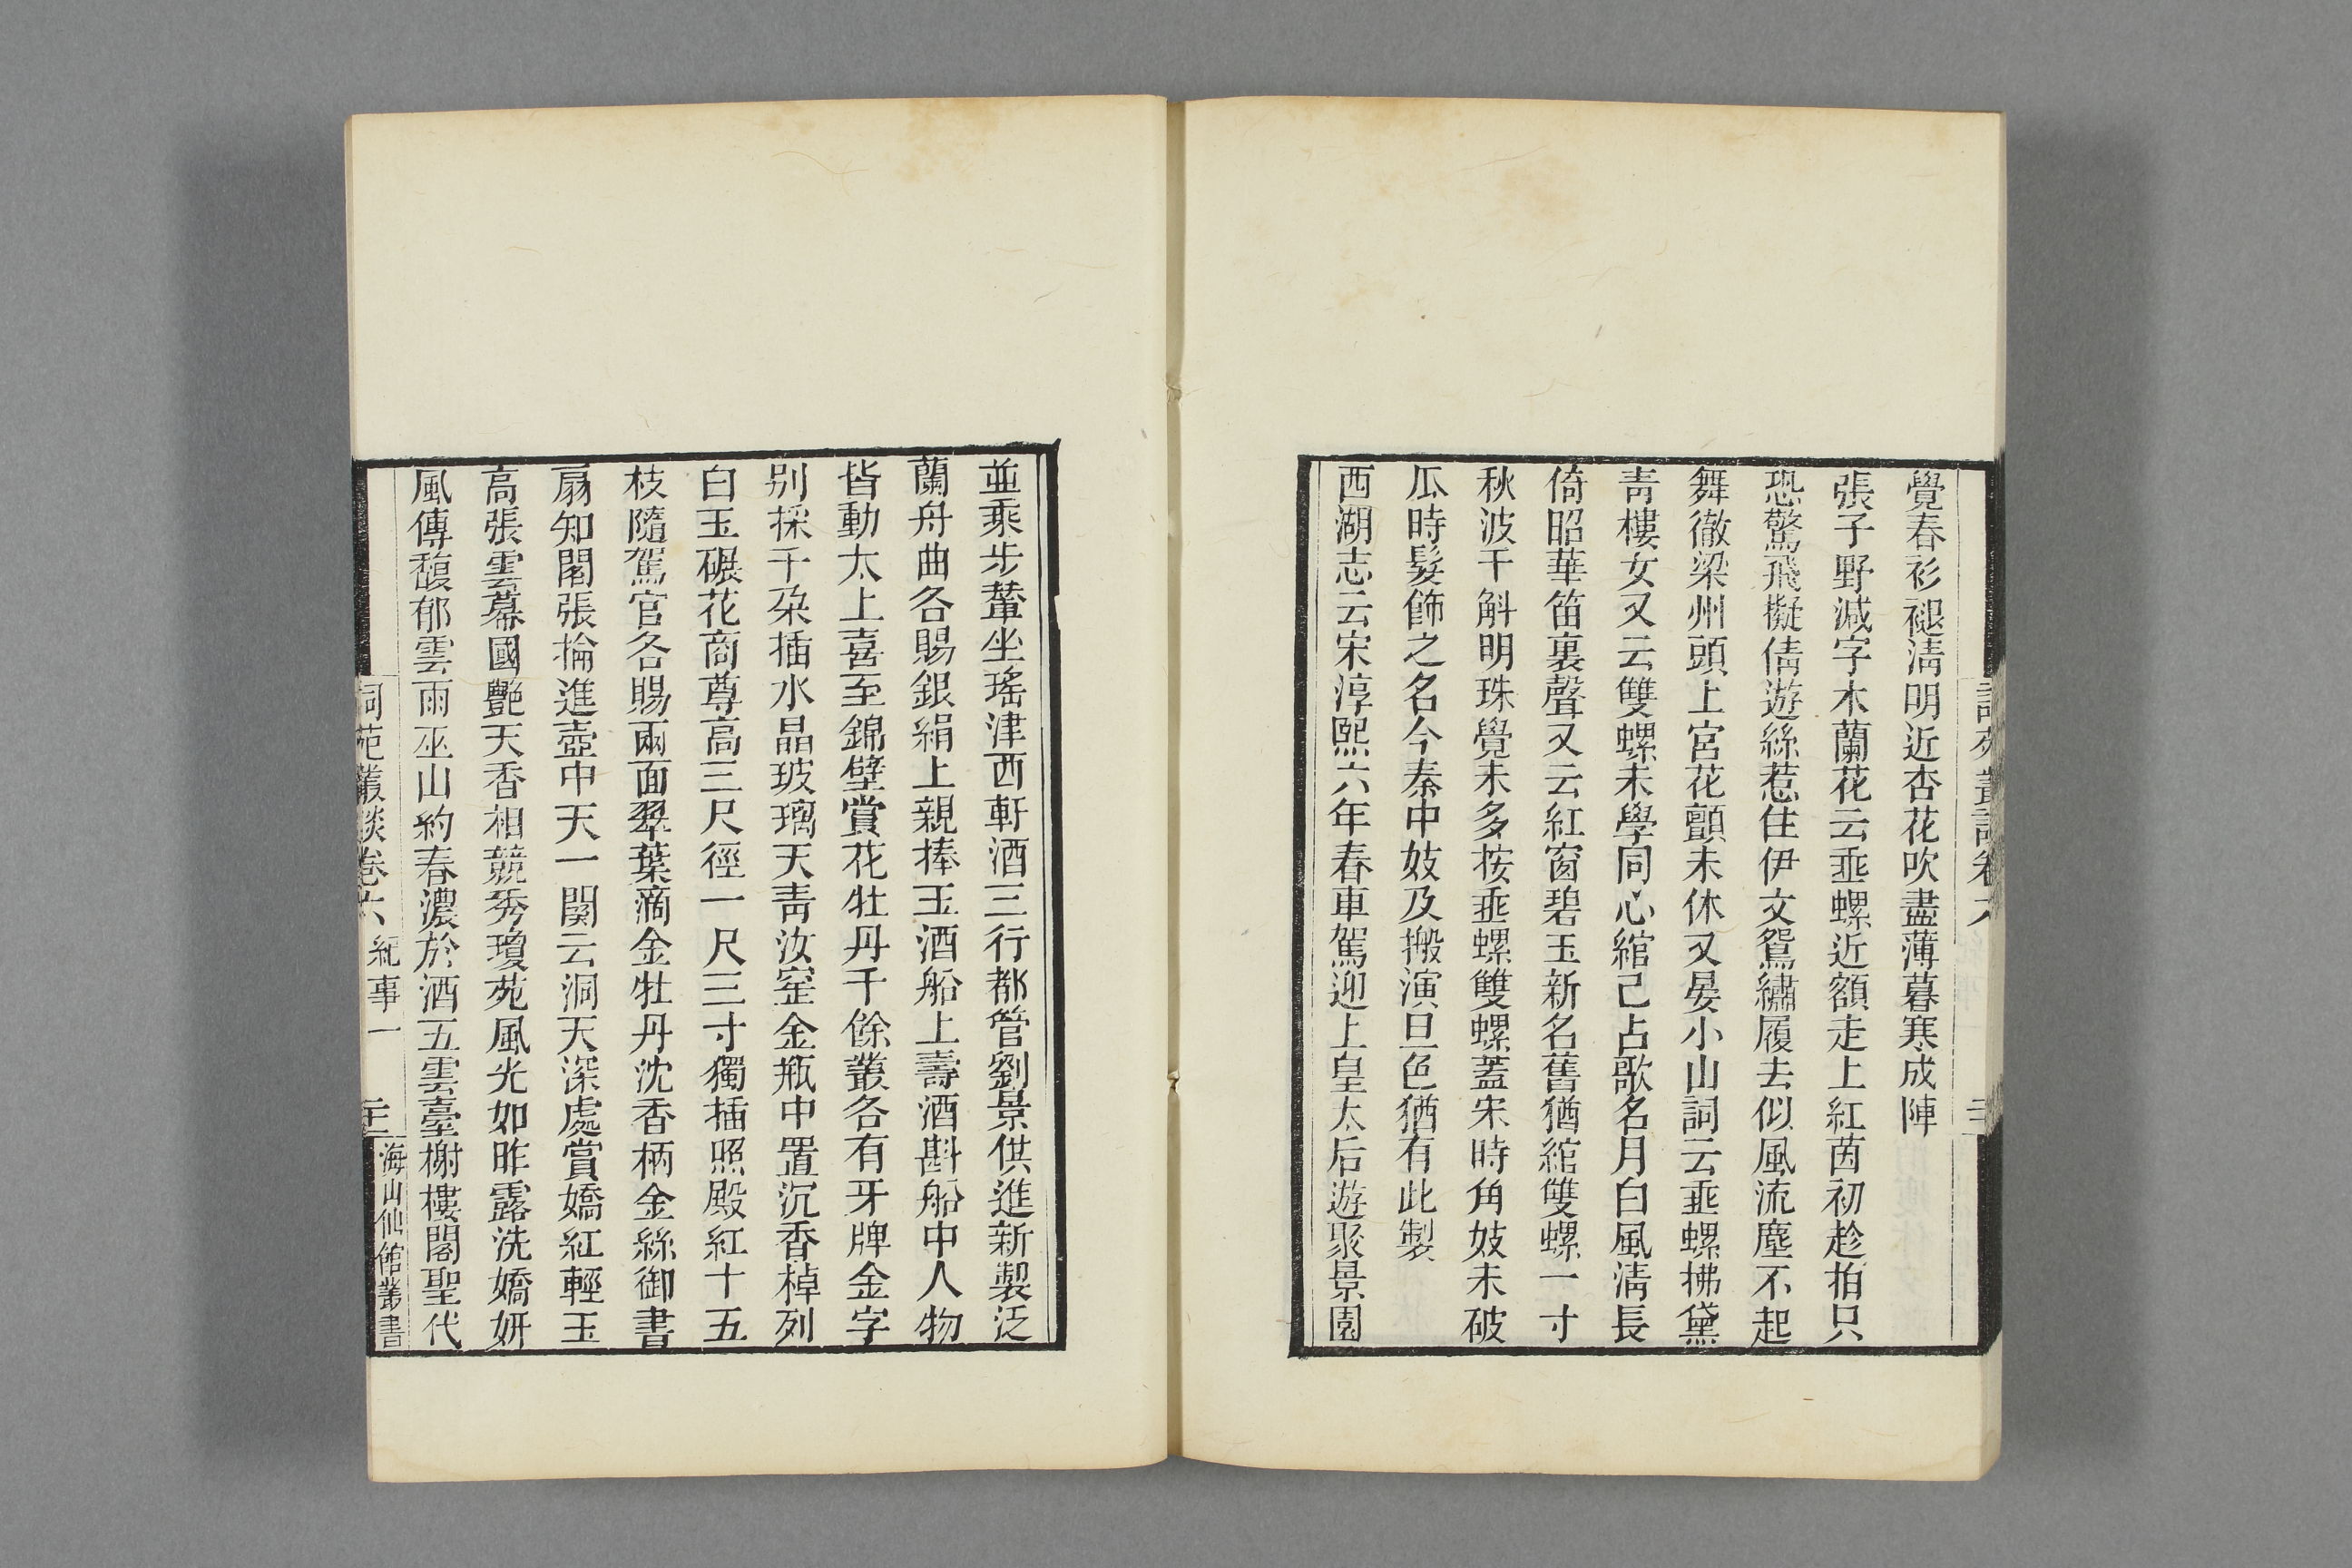 覺春衫褪淸明近杏花吹盡薄暮寒成陣
張子野減字木蘭花云埀螺近額走上紅茵初趁拍只
恐驚飛擬倩遊絲惹住伊文鴛繡履去似風流塵不起
舞徹梁州頭上宮花顫未休又晏小山詞云埀螺拂黛
靑樓女又云雙螺未學同心綰己占歌名月白風淸長
倚昭華笛裏聲又云紅窗碧玉新名舊猶綰雙螺一寸
秋波千斛明珠覺未多按埀螺雙螺葢宋時角妓未破
瓜時髮飾之名今秦中妓及搬演旦色猶有此製
西湖志云宋淳熙六年春車駕迎上皇太后遊聚景園
並乘步輦坐瑤津西軒酒三行都管劉景供進新製泛
蘭舟曲各賜銀絹上親捧玉酒船上壽酒斟船中人物
皆動太上喜至錦壁賞花牡丹千餘叢各有牙牌金字
别採千朶插水晶玻璃天靑汝窰金瓶中置沉香棹列
白玉碾花商尊高三尺徑一尺三寸獨插照殿紅十五
枝隨駕官各賜兩面翠葉滴金牡丹沈香柄金絲御書
扇知閣張掄進壺中天一闋云洞天深處賞嬌紅輕玉
高張雲幕國艷天香相競秀瓊苑風光如昨露洗嬌妍
風傳馥郁雲雨巫山約春濃於酒五雲臺榭樓閣聖代
詞苑叢談卷六 紀事一 二十一 海山仙館叢書